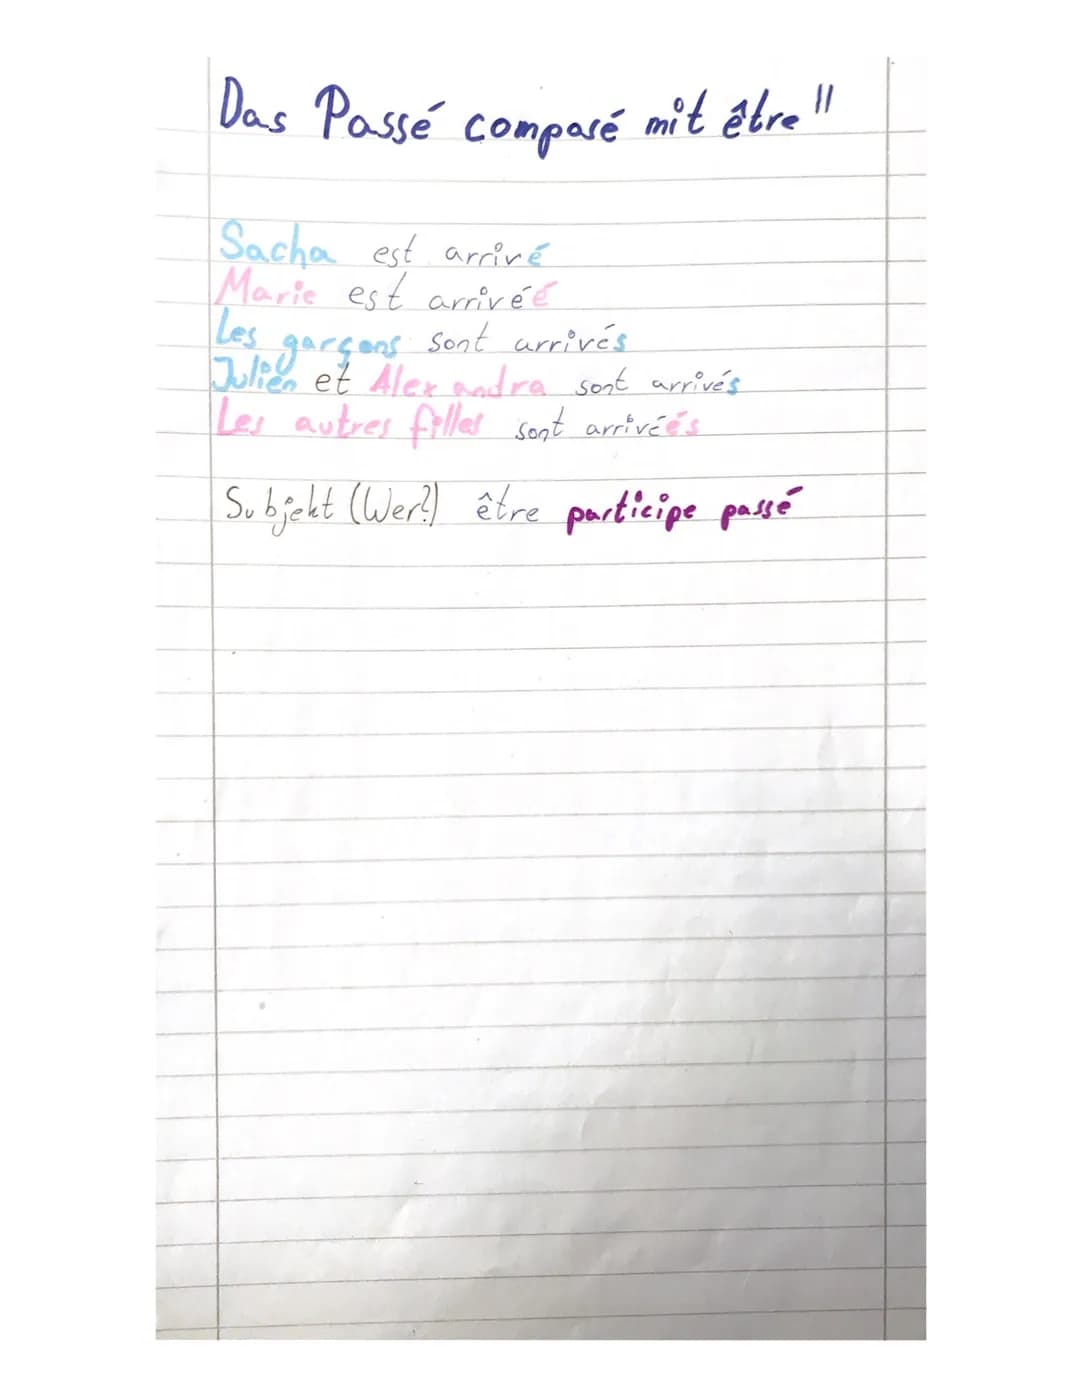 Das Passé composé mit être"
Sacha est arrivé
Marie est arrivéé
Les garçons sont arrivés
Julien et Alexandra sont arrivés
Les autres filles sont arrivéés
Subjekt (Wer?) être participe passé